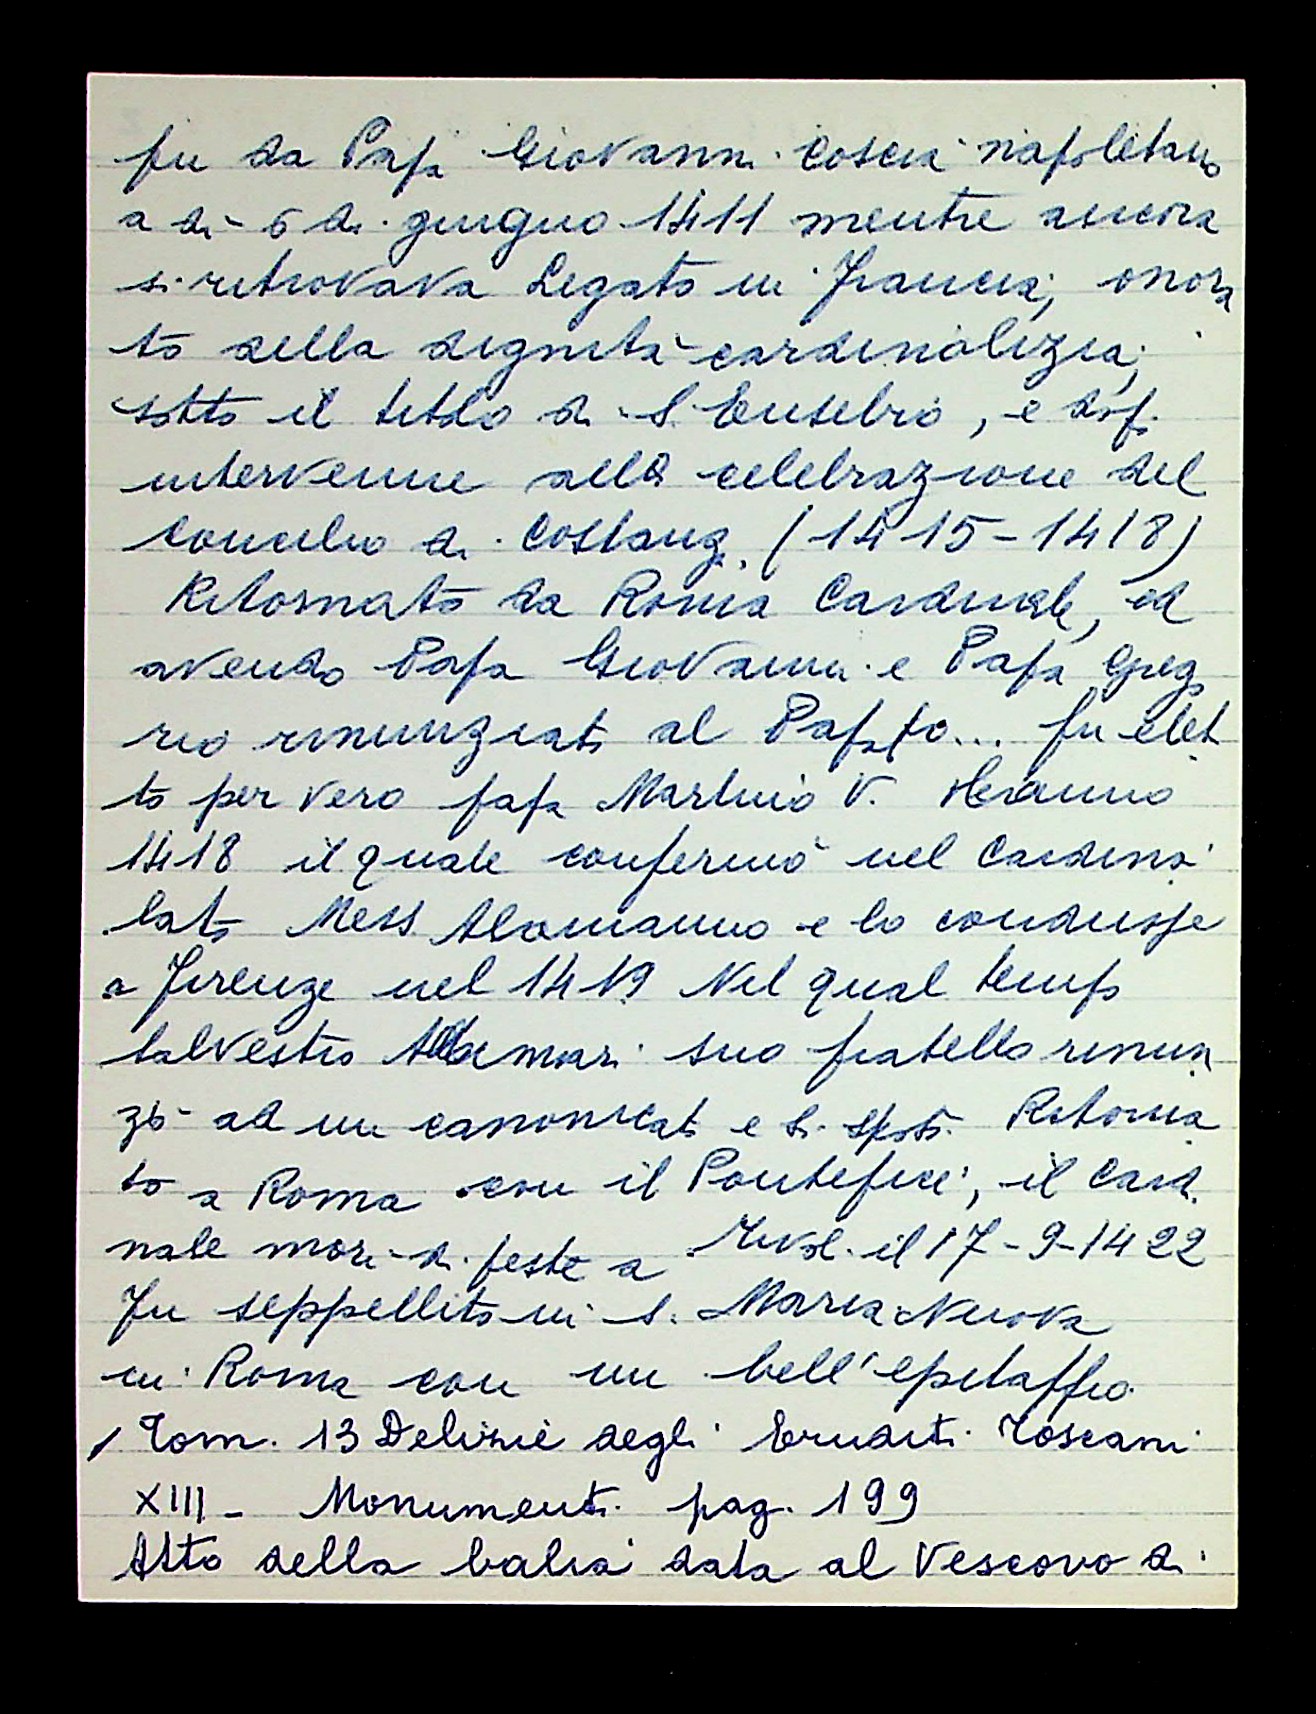 fu da Papa Giovanni Coscia napoletano
a dì 6 di giugno 1411 mentre ancora
si ritrovava Legato in Francia, onora
to della dignità cardinalizia,
sotto il titolo di S. Eusebio, e dopo
intervenne alla celebrazione del
Concilio di Costanza (1415-1418)
Ritornato da Roma Cardinale, ed
avendo Papa Giovanni e Papa Grego
rio rinunziato al Papato... fu elet
to per vero papa Martino V.
1418 il quale confermò nel Cardina
lato Mess. Alamanno e lo condusse
a Firenze nel 1419 Nel qual tempo
Salvestro Adimari suo fratello rinun
zò ad un canonicato e si sposò. Ritorna
to a Roma con il Pontefice, il Cardi
nale morì di peste a Tivoli il 17-9-1422
Fu seppellito in S. Maria Nuova
in Roma con un bell'epitaffio.
Tom. 13 Delizie degli Eruditi Toscani
XIII - Monumenti pag. 199
Atto della balia data al Vescovo di